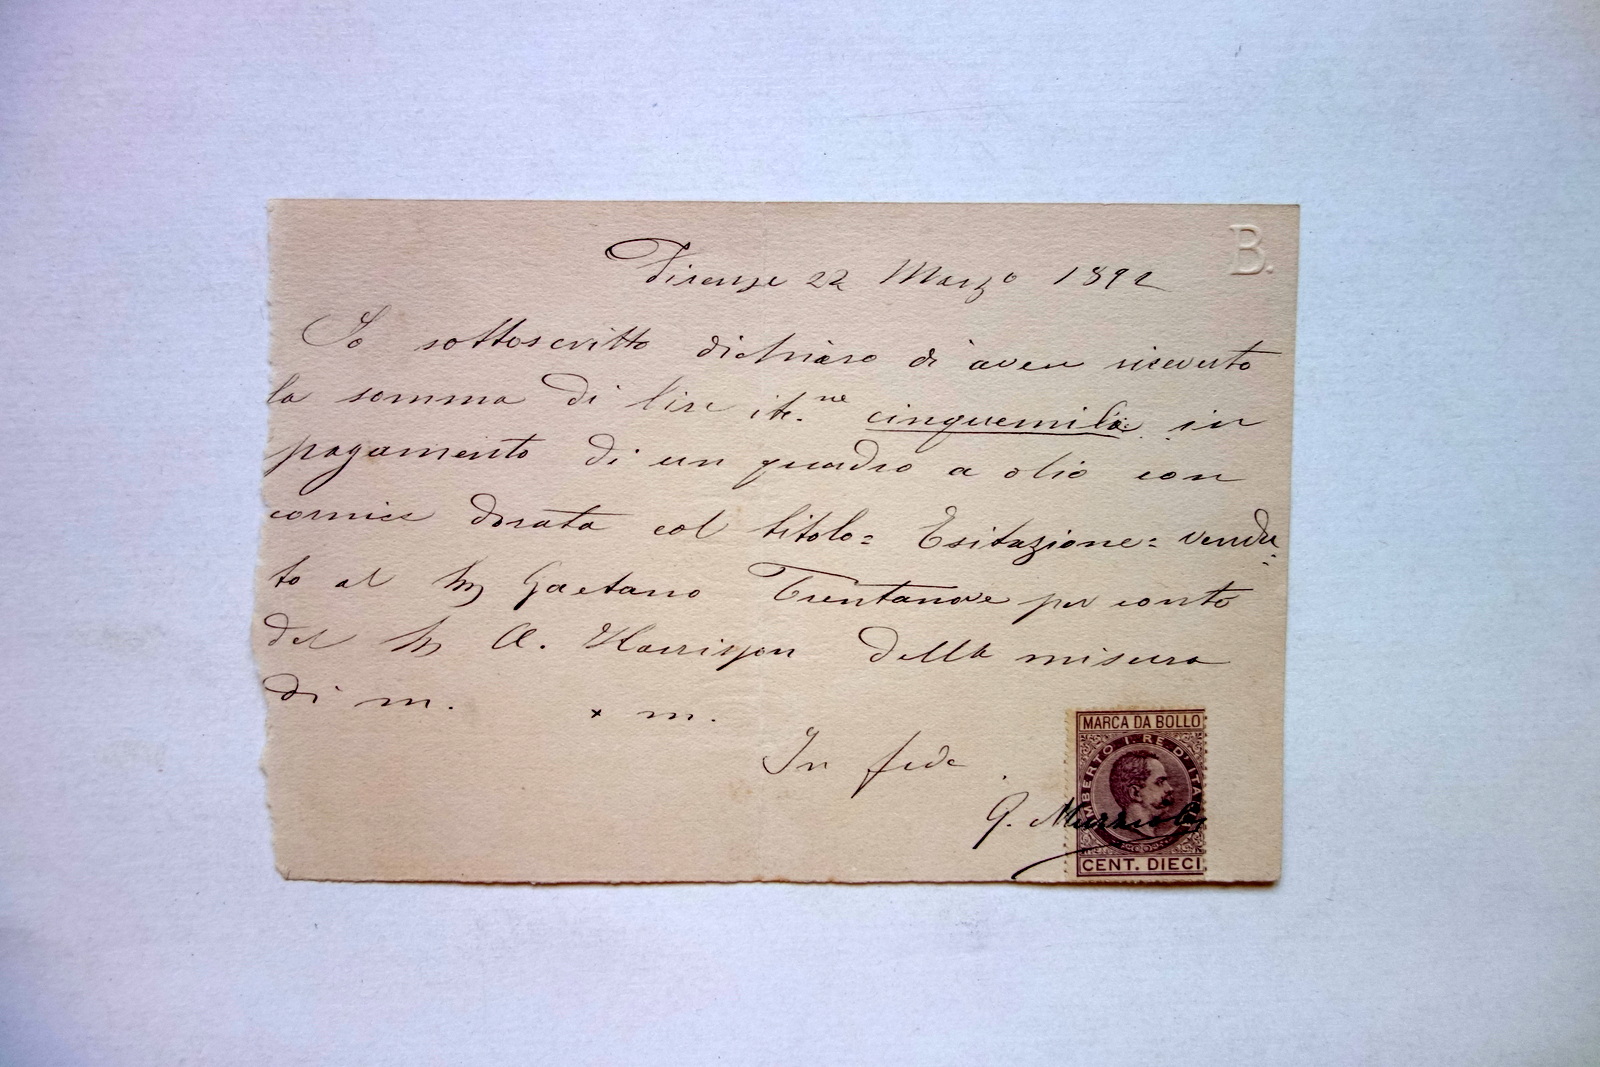 B.
Firenze 22 Marzo 1892
Io sottoscritto dichiaro di aver ricevuto
la somma di lire it.ne cinquemila in
pagamento di un quadro a olio con
cornice dorata col titolo = Esitazione = vendu-
to al Sig Gaetano Trentanove per conto
del Sig A. Harrison della misura
di m. x m.
In fede
MARCA DA BOLLO
UMBERTO I. RE D'ITALIA
G. Muzzioli
CENT. DIECI